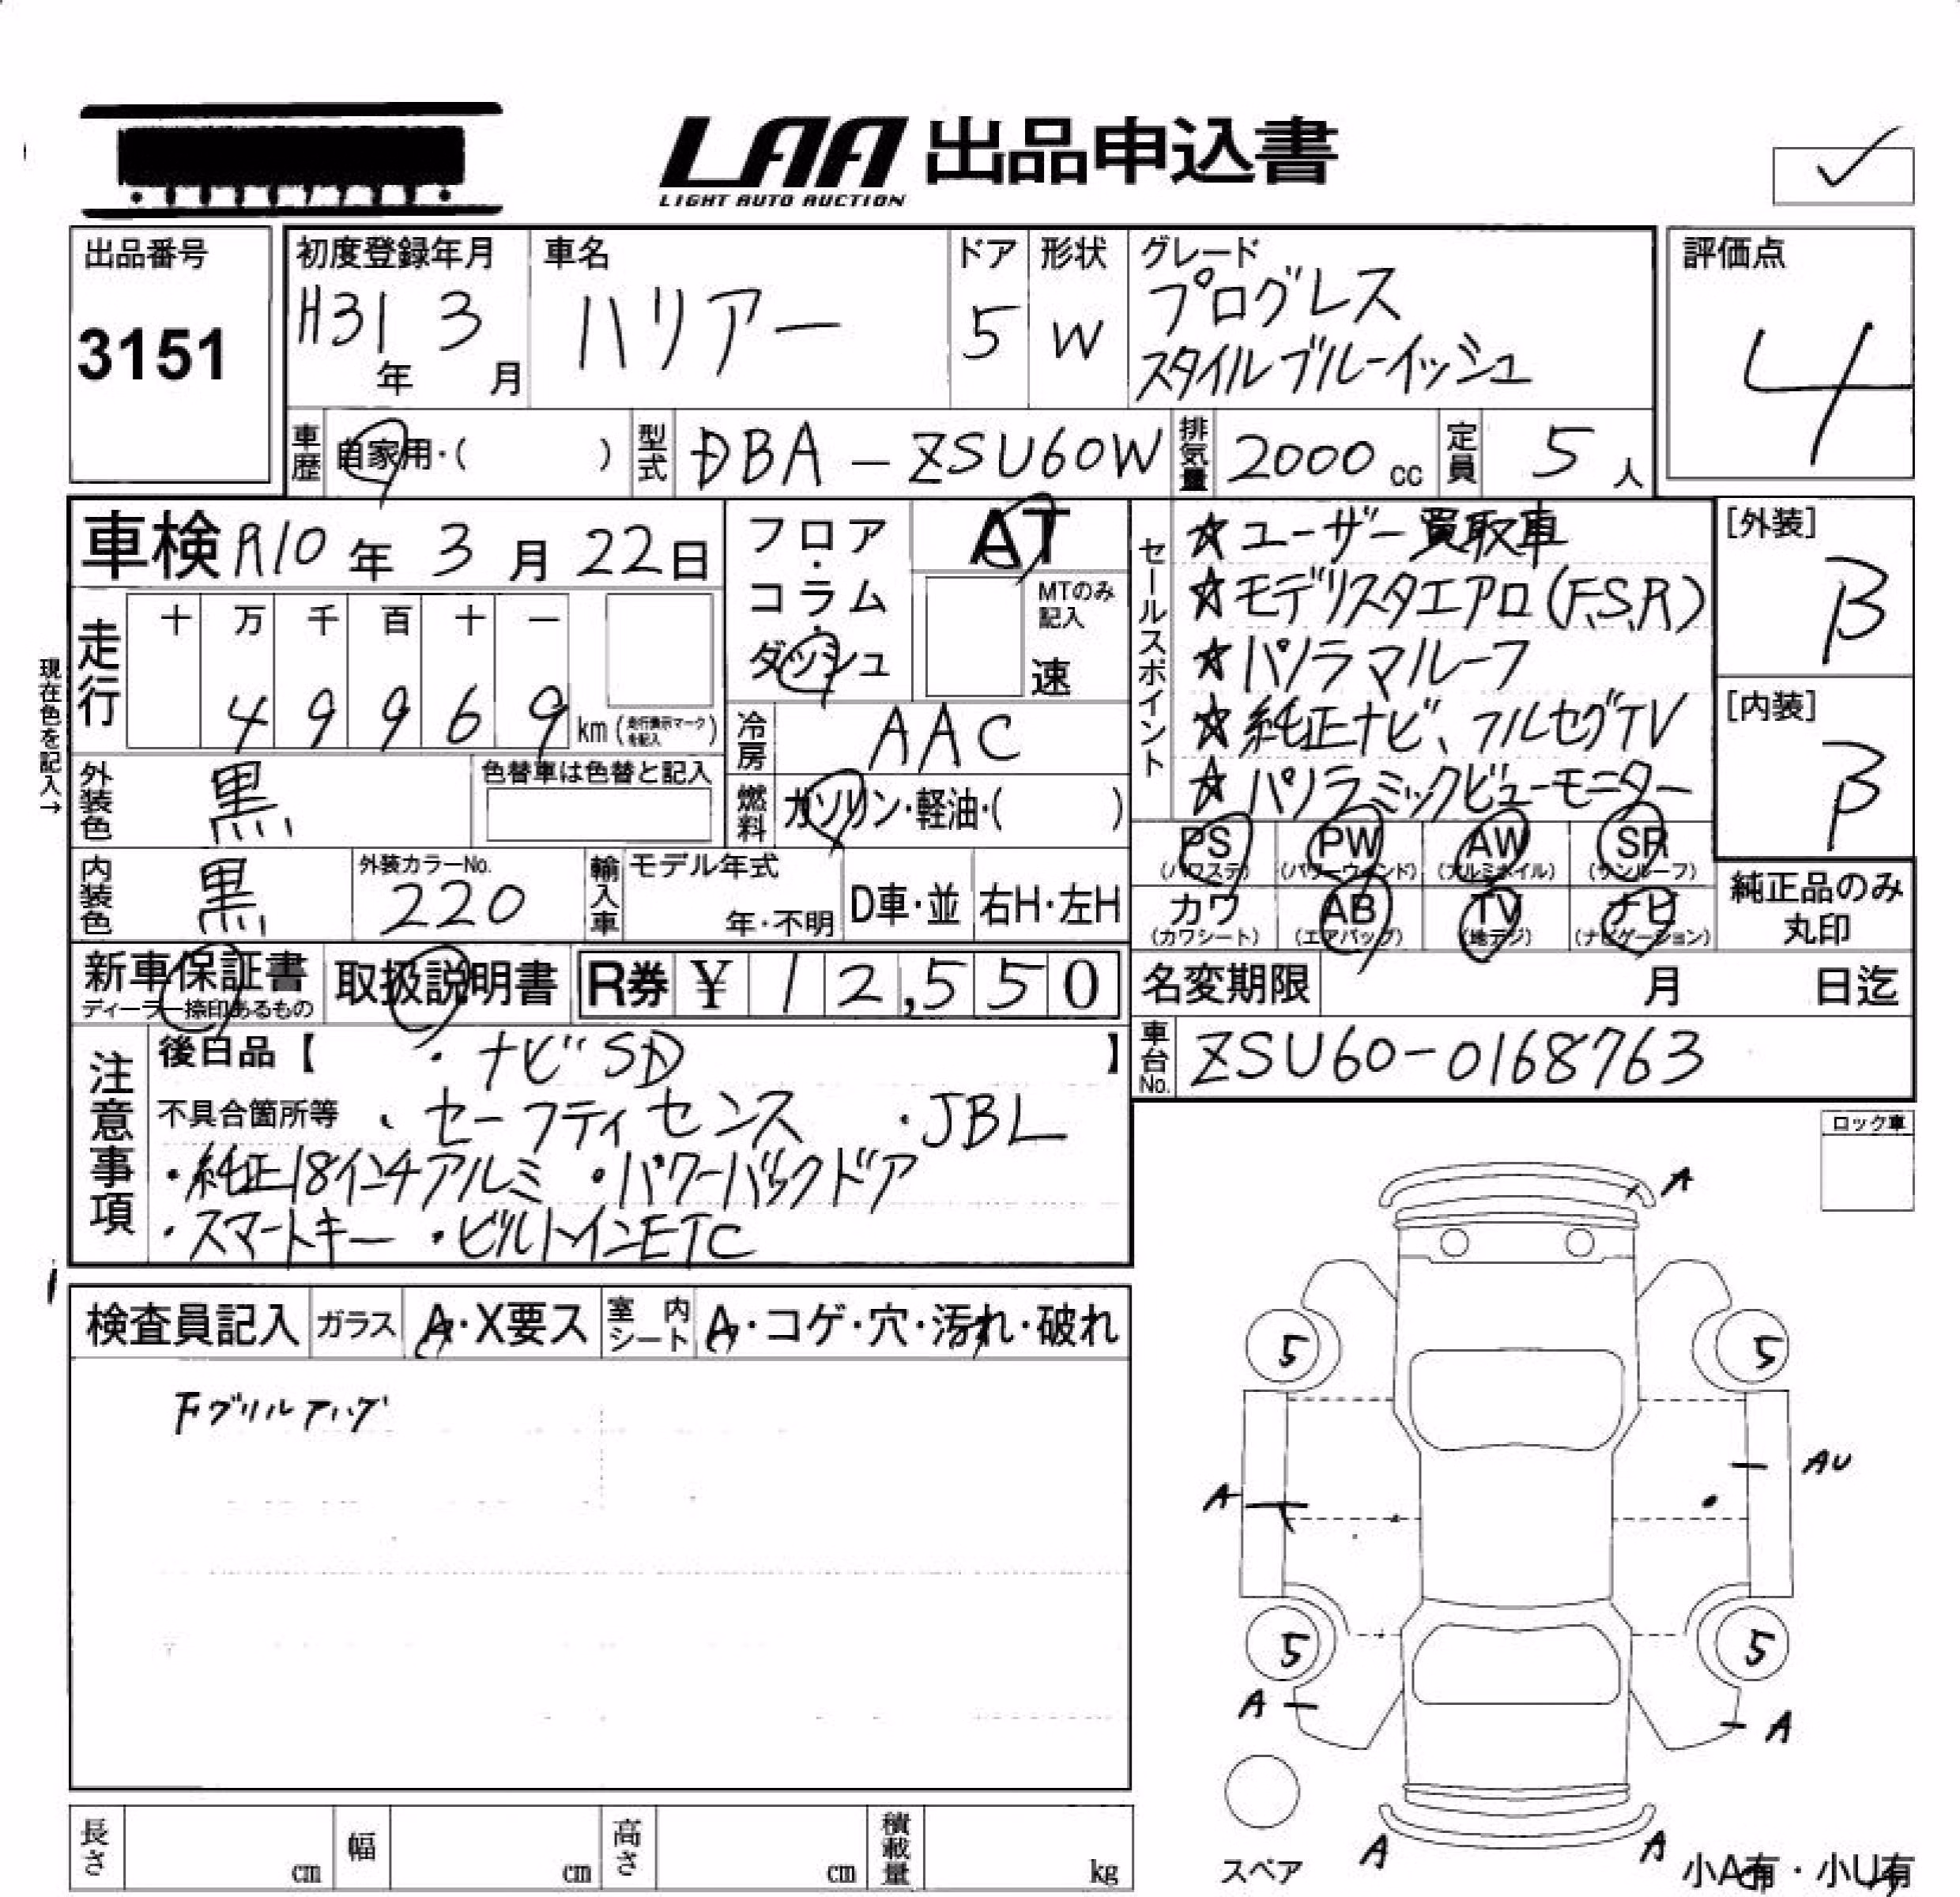 LAA 出品申込書
LIGHT AUTO AUCTION
出品番号
3151
初度登録年月
H31年 3月
車名
ハリアー
ドア
5
形状
W
グレード
プログレス
スタイルブルーイッシュ
評価点
4
車歴 自家用・( )
型式 DBA-ZSU60W
排気量 2000cc
定員 5人
車検 R10年 3月 22日
フロア・コラム・ダッシュ
AT
MTのみ記入
速
走行 十 万 千 百 十 一
4 9 9 6 9 km (走行表示マークを記入)
現在色を記入→
冷房 AAC
燃料 ガソリン・軽油・( )
外装色 黒
色替車は色替と記入
内装色 黒
外装カラーNo.
220
輸入車 モデル年式
年・不明
D車・並 右H・左H
セールスポイント
☆ユーザー買取車
☆モデリスタエアロ(F.S.R)
☆パノラマルーフ
☆純正ナビ、フルセグTV
☆パノラミックビューモニター
[外装]
B
[内装]
B
PS (パワステ) PW (パワーウィンド) AW (アルミホイル) SR (サンルーフ)
カワ (カワシート) AB (エアバッグ) TV (地デジ) ナビ (ナビゲーション)
純正品のみ丸印
新車保証書
ディーラー捺印あるもの
取扱説明書
R券 ¥ 12,550
名変期限 月 日迄
車台No. ZSU60-0168763
注意事項
後日品【 ・ナビSD 】
不具合箇所等 ・セーフティセンス ・JBL
・純正18インチアルミ ・パワーバックドア
・スマートキー ・ビルトインETC
ロック車
検査員記入 ガラス A・X要ス 室内シート A・コゲ・穴・汚れ・破れ
A
5 5
A AU
5 5
A A
A A
スペア
小A有・小U有
長さ cm 幅 cm 高さ cm 積載量 kg